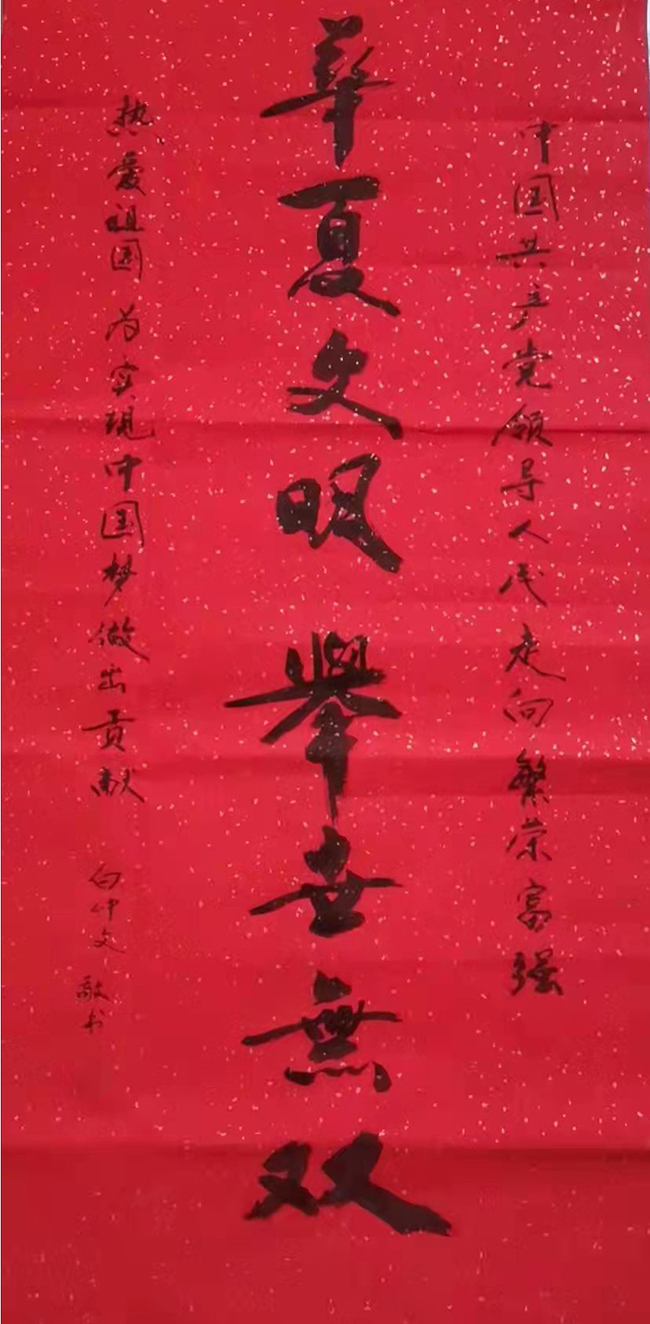 中国共产党领导人民走向繁荣富强
華夏文明舉世無双
热爱祖国为实现中国梦做出贡献
向仲文 敬书